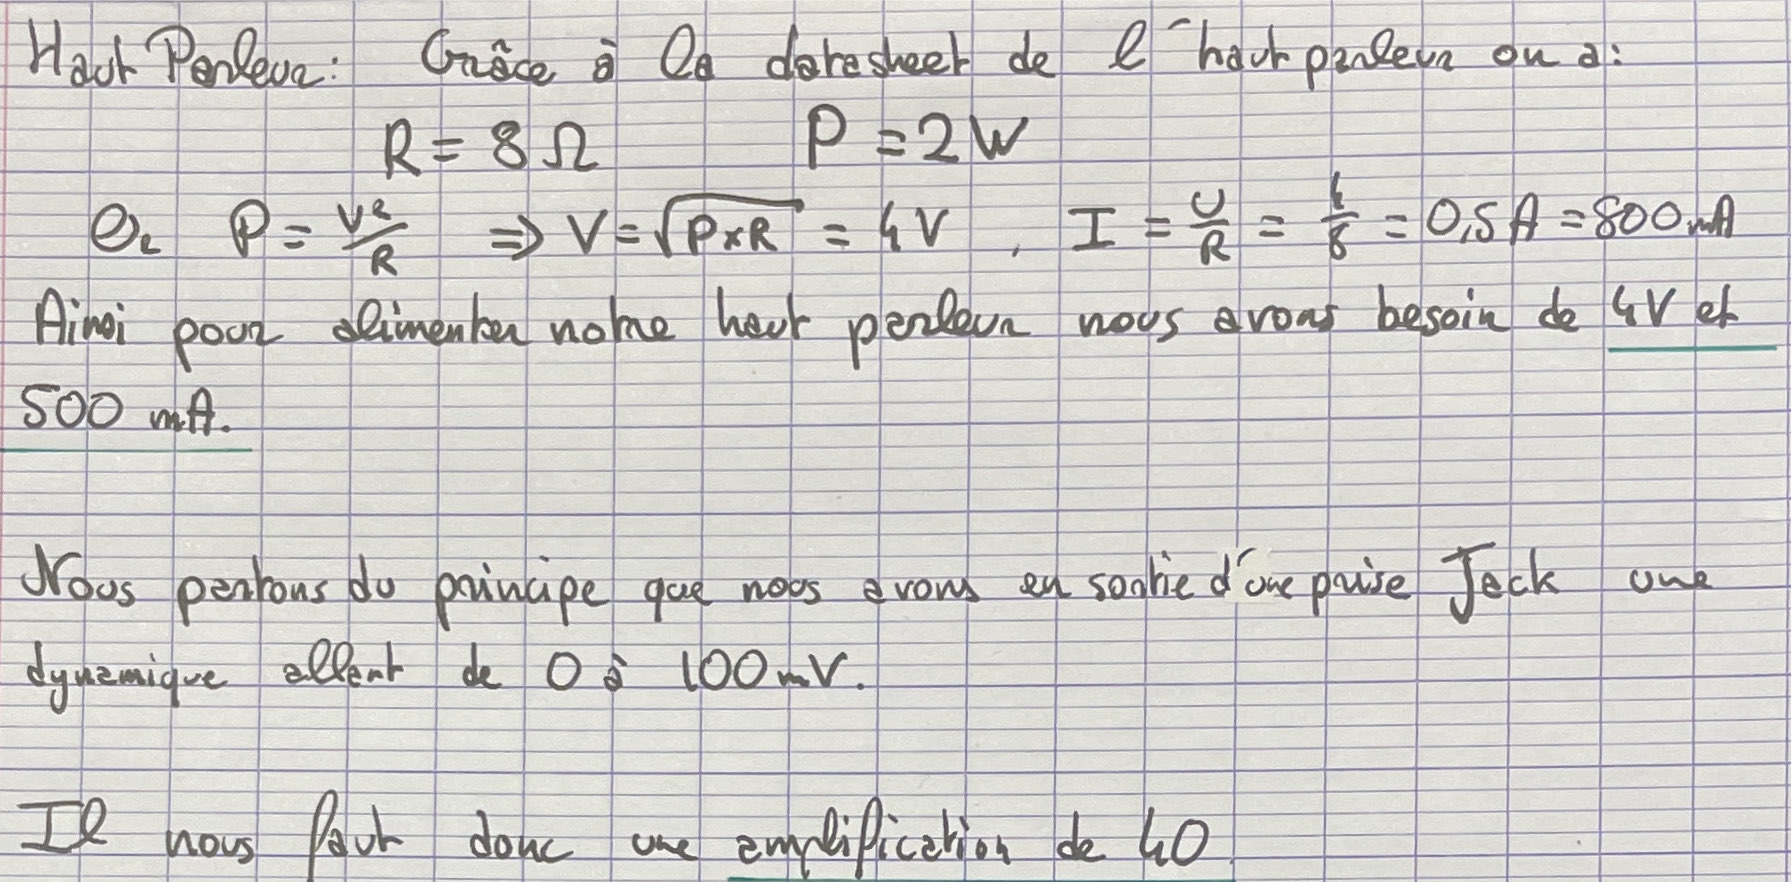 Haut Parleur: Grâce à la datasheet de l'haut parleur on a:
R = 8 Ω P = 2 W
Or P = V²/R ⇒ V = √(P×R) = 4V , I = U/R = 4/8 = 0,5 A = 500 mA
Ainsi pour alimenter notre haut parleur nous avons besoin de 4V et
500 mA.
Nous partons du principe que nous avons en sortie d'une prise Jack une
dynamique allant de 0 à 100 mV.
Il nous faut donc une amplification de 40